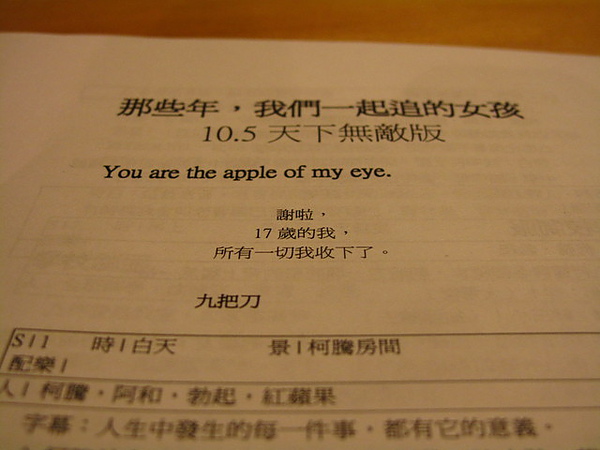 那些年，我們一起追的女孩
10.5 天下無敵版
You are the apple of my eye.
謝啦，
17 歲的我，
所有一切我收下了。
九把刀
S | 1 時 | 白天 景 | 柯騰房間
配樂 |
人 | 柯騰，阿和，勃起，紅蘋果
字幕：人生中發生的每一件事，都有它的意義。